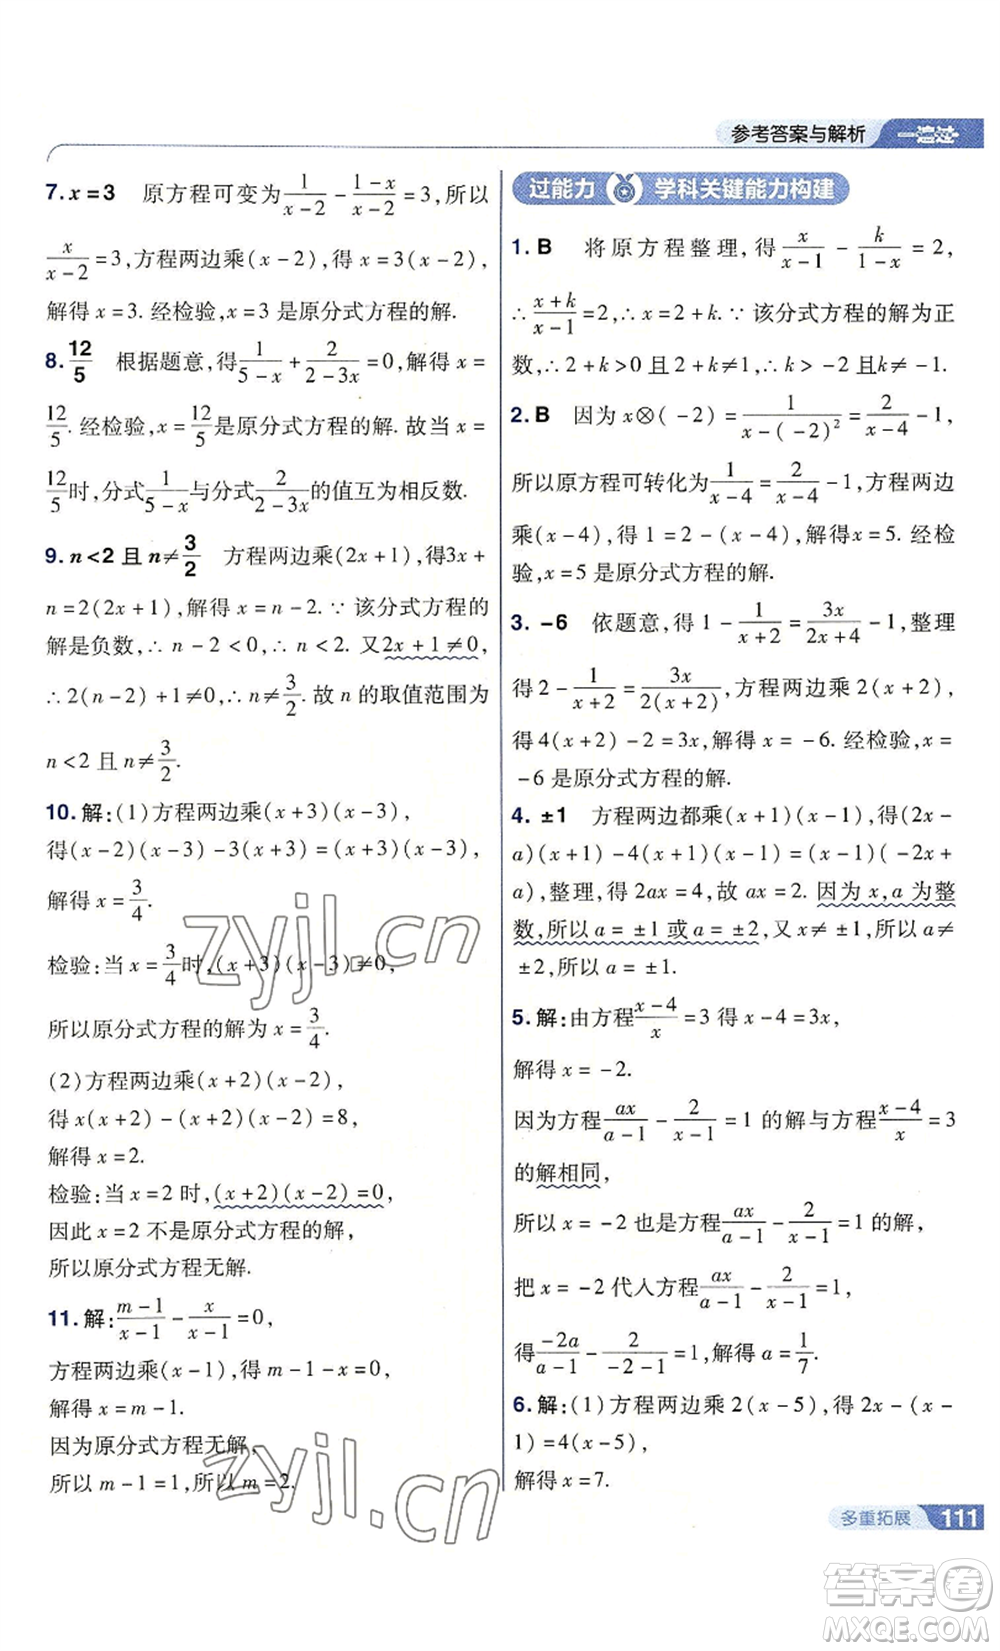 参考答案与解析 一遍过
7. x=3 原方程可变为 1/(x-2) - (1-x)/(x-2) = 3, 所以
x/(x-2) = 3, 方程两边乘(x-2), 得 x=3(x-2),
解得 x=3. 经检验, x=3 是原分式方程的解.
8. 12/5 根据题意, 得 1/(5-x) + 2/(2-3x) = 0, 解得 x=
12/5. 经检验, x=12/5 是原分式方程的解. 故当 x=
12/5 时, 分式 1/(5-x) 与分式 2/(2-3x) 的值互为相反数.
9. n<2 且 n≠3/2 方程两边乘(2x+1), 得3x+
n=2(2x+1), 解得 x=n-2. ∵ 该分式方程的
解是负数, ∴ n-2<0, ∴ n<2. 又2x+1≠0,
∴ 2(n-2)+1≠0, ∴ n≠3/2. 故 n 的取值范围为
n<2 且 n≠3/2.
10. 解:(1)方程两边乘(x+3)(x-3),
得(x-2)(x-3)-3(x+3)=(x+3)(x-3),
解得 x=3/4.
检验:当 x=3/4 时, (x+3)(x-3)≠0,
所以原分式方程的解为 x=3/4.
(2)方程两边乘(x+2)(x-2),
得 x(x+2)-(x+2)(x-2)=8,
解得 x=2.
检验:当 x=2 时, (x+2)(x-2)=0,
因此 x=2 不是原分式方程的解,
所以原分式方程无解.
11. 解: (m-1)/(x-1) - x/(x-1) = 0,
方程两边乘(x-1), 得 m-1-x=0,
解得 x=m-1.
因为原分式方程无解,
所以 m-1=1, 所以 m=2.
过能力 学科关键能力构建
1. B 将原方程整理, 得 x/(x-1) - k/(1-x) = 2,
∴ (x+k)/(x-1) = 2, ∴ x=2+k. ∵ 该分式方程的解为正
数, ∴ 2+k>0 且 2+k≠1, ∴ k>-2 且 k≠-1.
2. B 因为 x⊗(-2) = 1/(x-(-2)²) = 2/(x-4) - 1,
所以原方程可转化为 1/(x-4) = 2/(x-4) - 1, 方程两边
乘(x-4), 得 1=2-(x-4), 解得 x=5. 经检
验, x=5 是原分式方程的解.
3. -6 依题意, 得 1 - 1/(x+2) = 3x/(2x+4) - 1, 整理
得 2 - 1/(x+2) = 3x/(2(x+2)), 方程两边乘 2(x+2),
得 4(x+2)-2=3x, 解得 x=-6. 经检验, x=
-6 是原分式方程的解.
4. ±1 方程两边都乘(x+1)(x-1), 得(2x-
a)(x+1)-4(x+1)(x-1)=(x-1)(-2x+
a), 整理, 得 2ax=4, 故 ax=2. 因为 x,a 为整
数, 所以 a=±1 或 a=±2, 又 x≠±1, 所以 a≠
±2, 所以 a=±1.
5. 解:由方程 (x-4)/x = 3 得 x-4=3x,
解得 x=-2.
因为方程 ax/(a-1) - 2/(x-1) = 1 的解与方程 (x-4)/x = 3
的解相同,
所以 x=-2 也是方程 ax/(a-1) - 2/(x-1) = 1 的解,
把 x=-2 代入方程 ax/(a-1) - 2/(x-1) = 1,
得 -2a/(a-1) - 2/(-2-1) = 1, 解得 a=1/7.
6. 解:(1)方程两边乘 2(x-5), 得 2x-(x-
1)=4(x-5),
解得 x=7.
多重拓展 111
zyjl.cn
zyjl.cn
答案卷
MXQE.COM